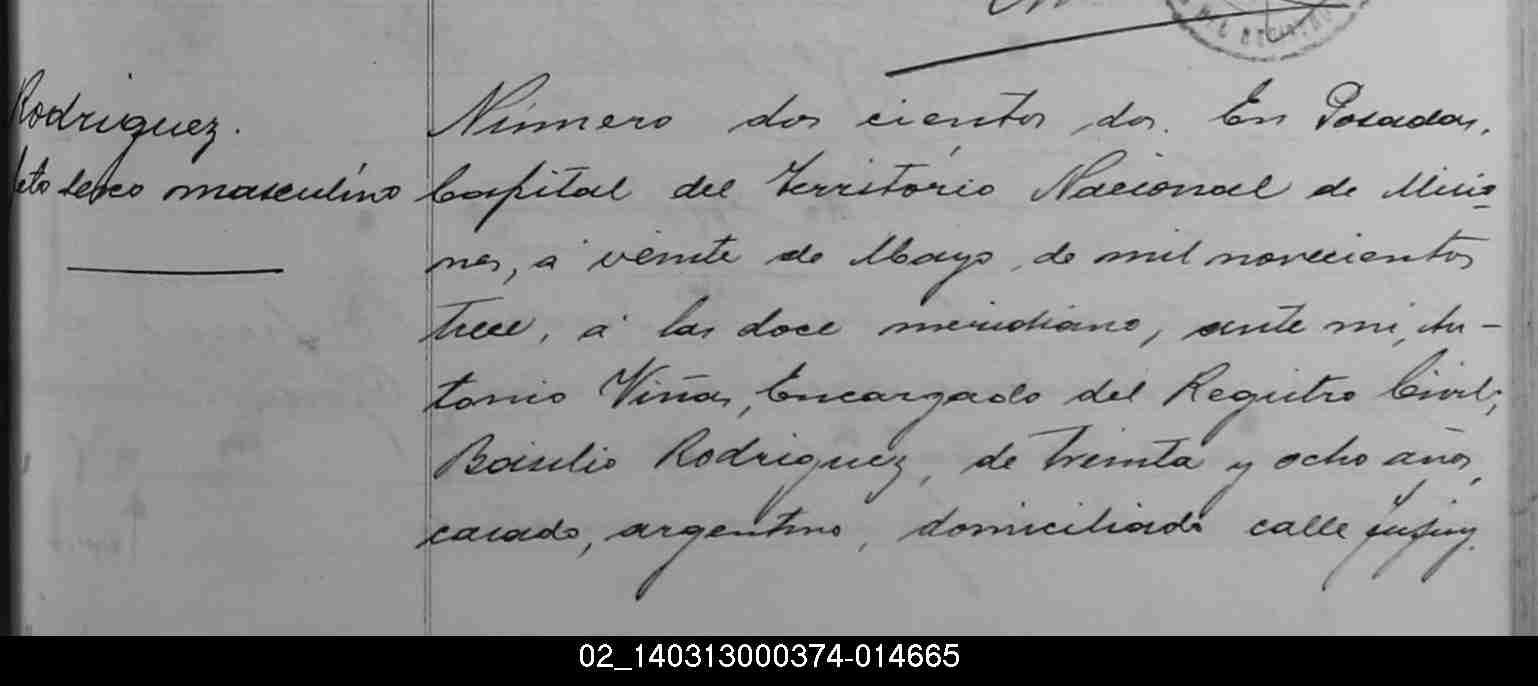 Rodriguez.
feto sexo masculino
Número dos cientos dos. En Posadas,
Capital del Território Nacional de Misio-
nes, á veinte de Mayo de mil novecientos
trece, á las doce meridiano, ante mi, An-
tonio Viñas, Encargado del Registro Civil;
Basilio Rodriguez, de treinta y ocho años,
casado, argentino, domiciliado calle Jujuy.
02_140313000374-014665